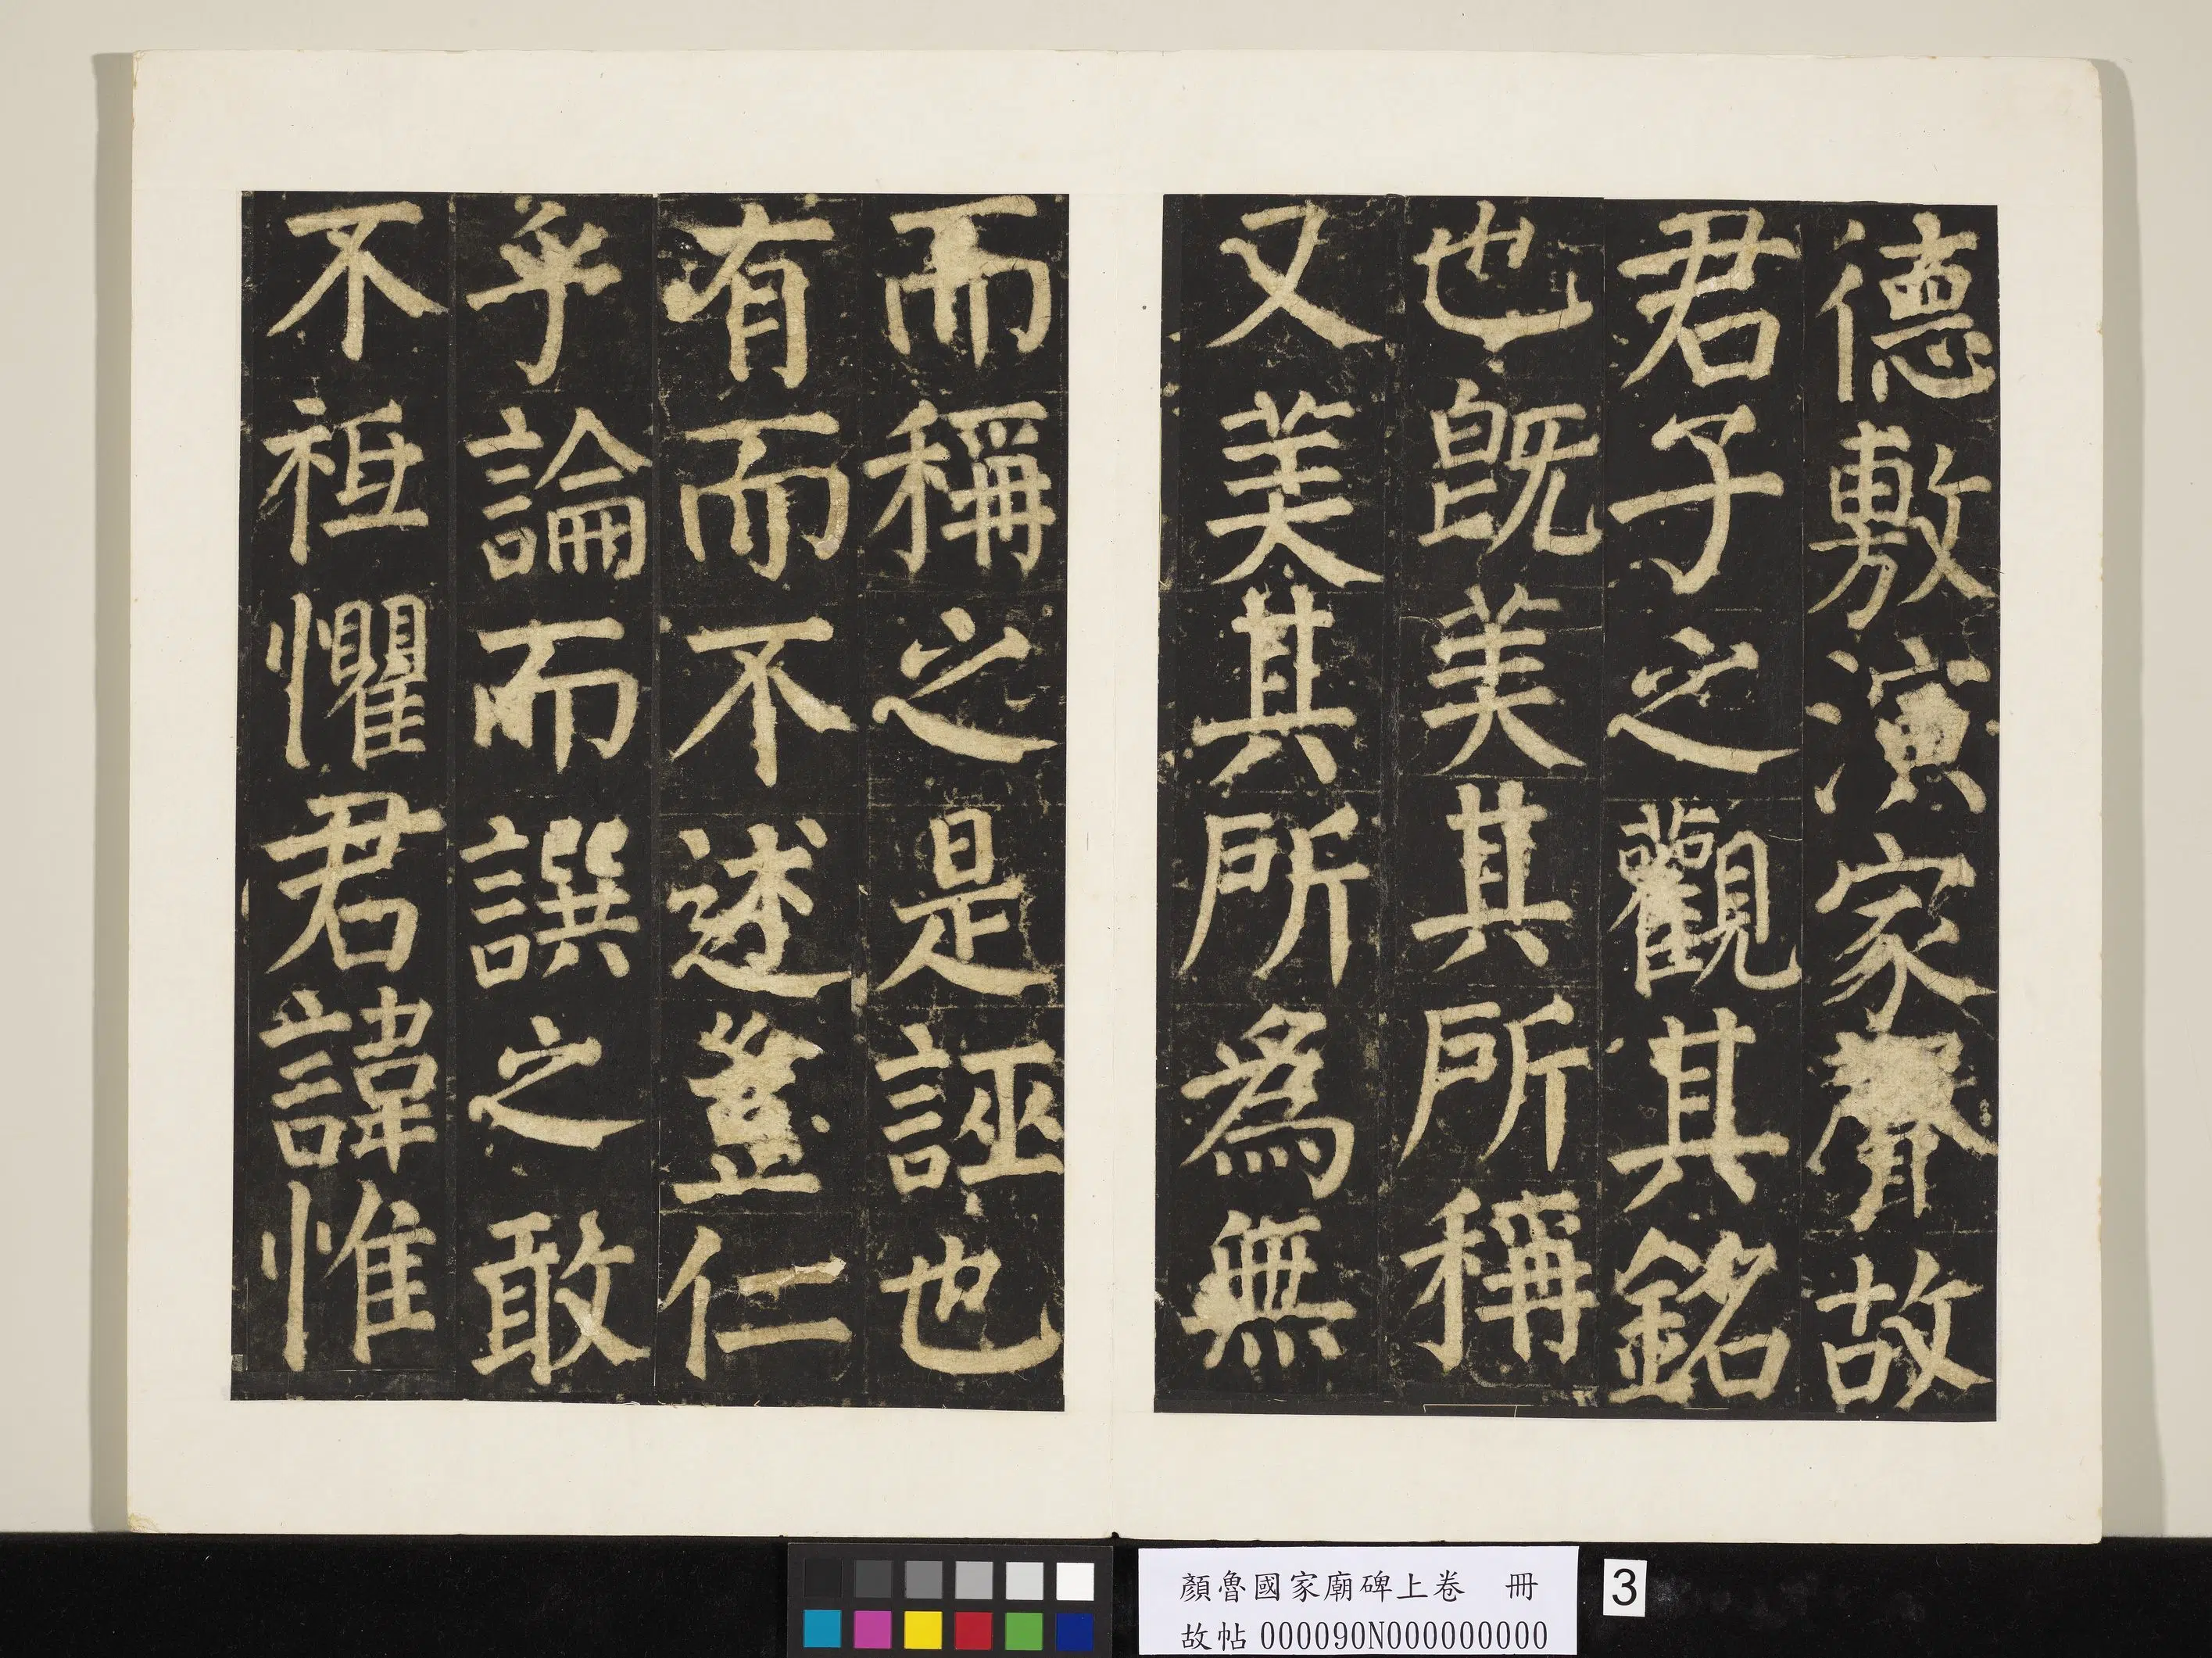 德敷演家聲故
君子之觀其銘
也旣美其所稱
又美其所為無
而稱之是誣也
有而不述豈仁
乎論而譔之敢
不袛懼君諱惟
顏魯國家廟碑上卷 冊
故帖 000090N000000000
3